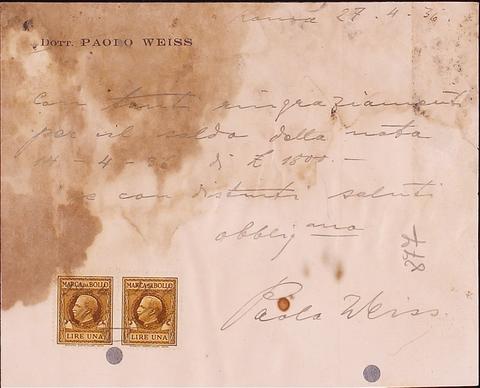 27-4-36.
Dott. PAOLO WEISS
Con tanti ringraziamenti
per il saldo della nota
14-4-36 di £ 1800.-
e con distinti saluti
obbligmo
847
Paolo Weiss.
MARCA DA BOLLO MARCA DA BOLLO
LIRE UNA LIRE UNA